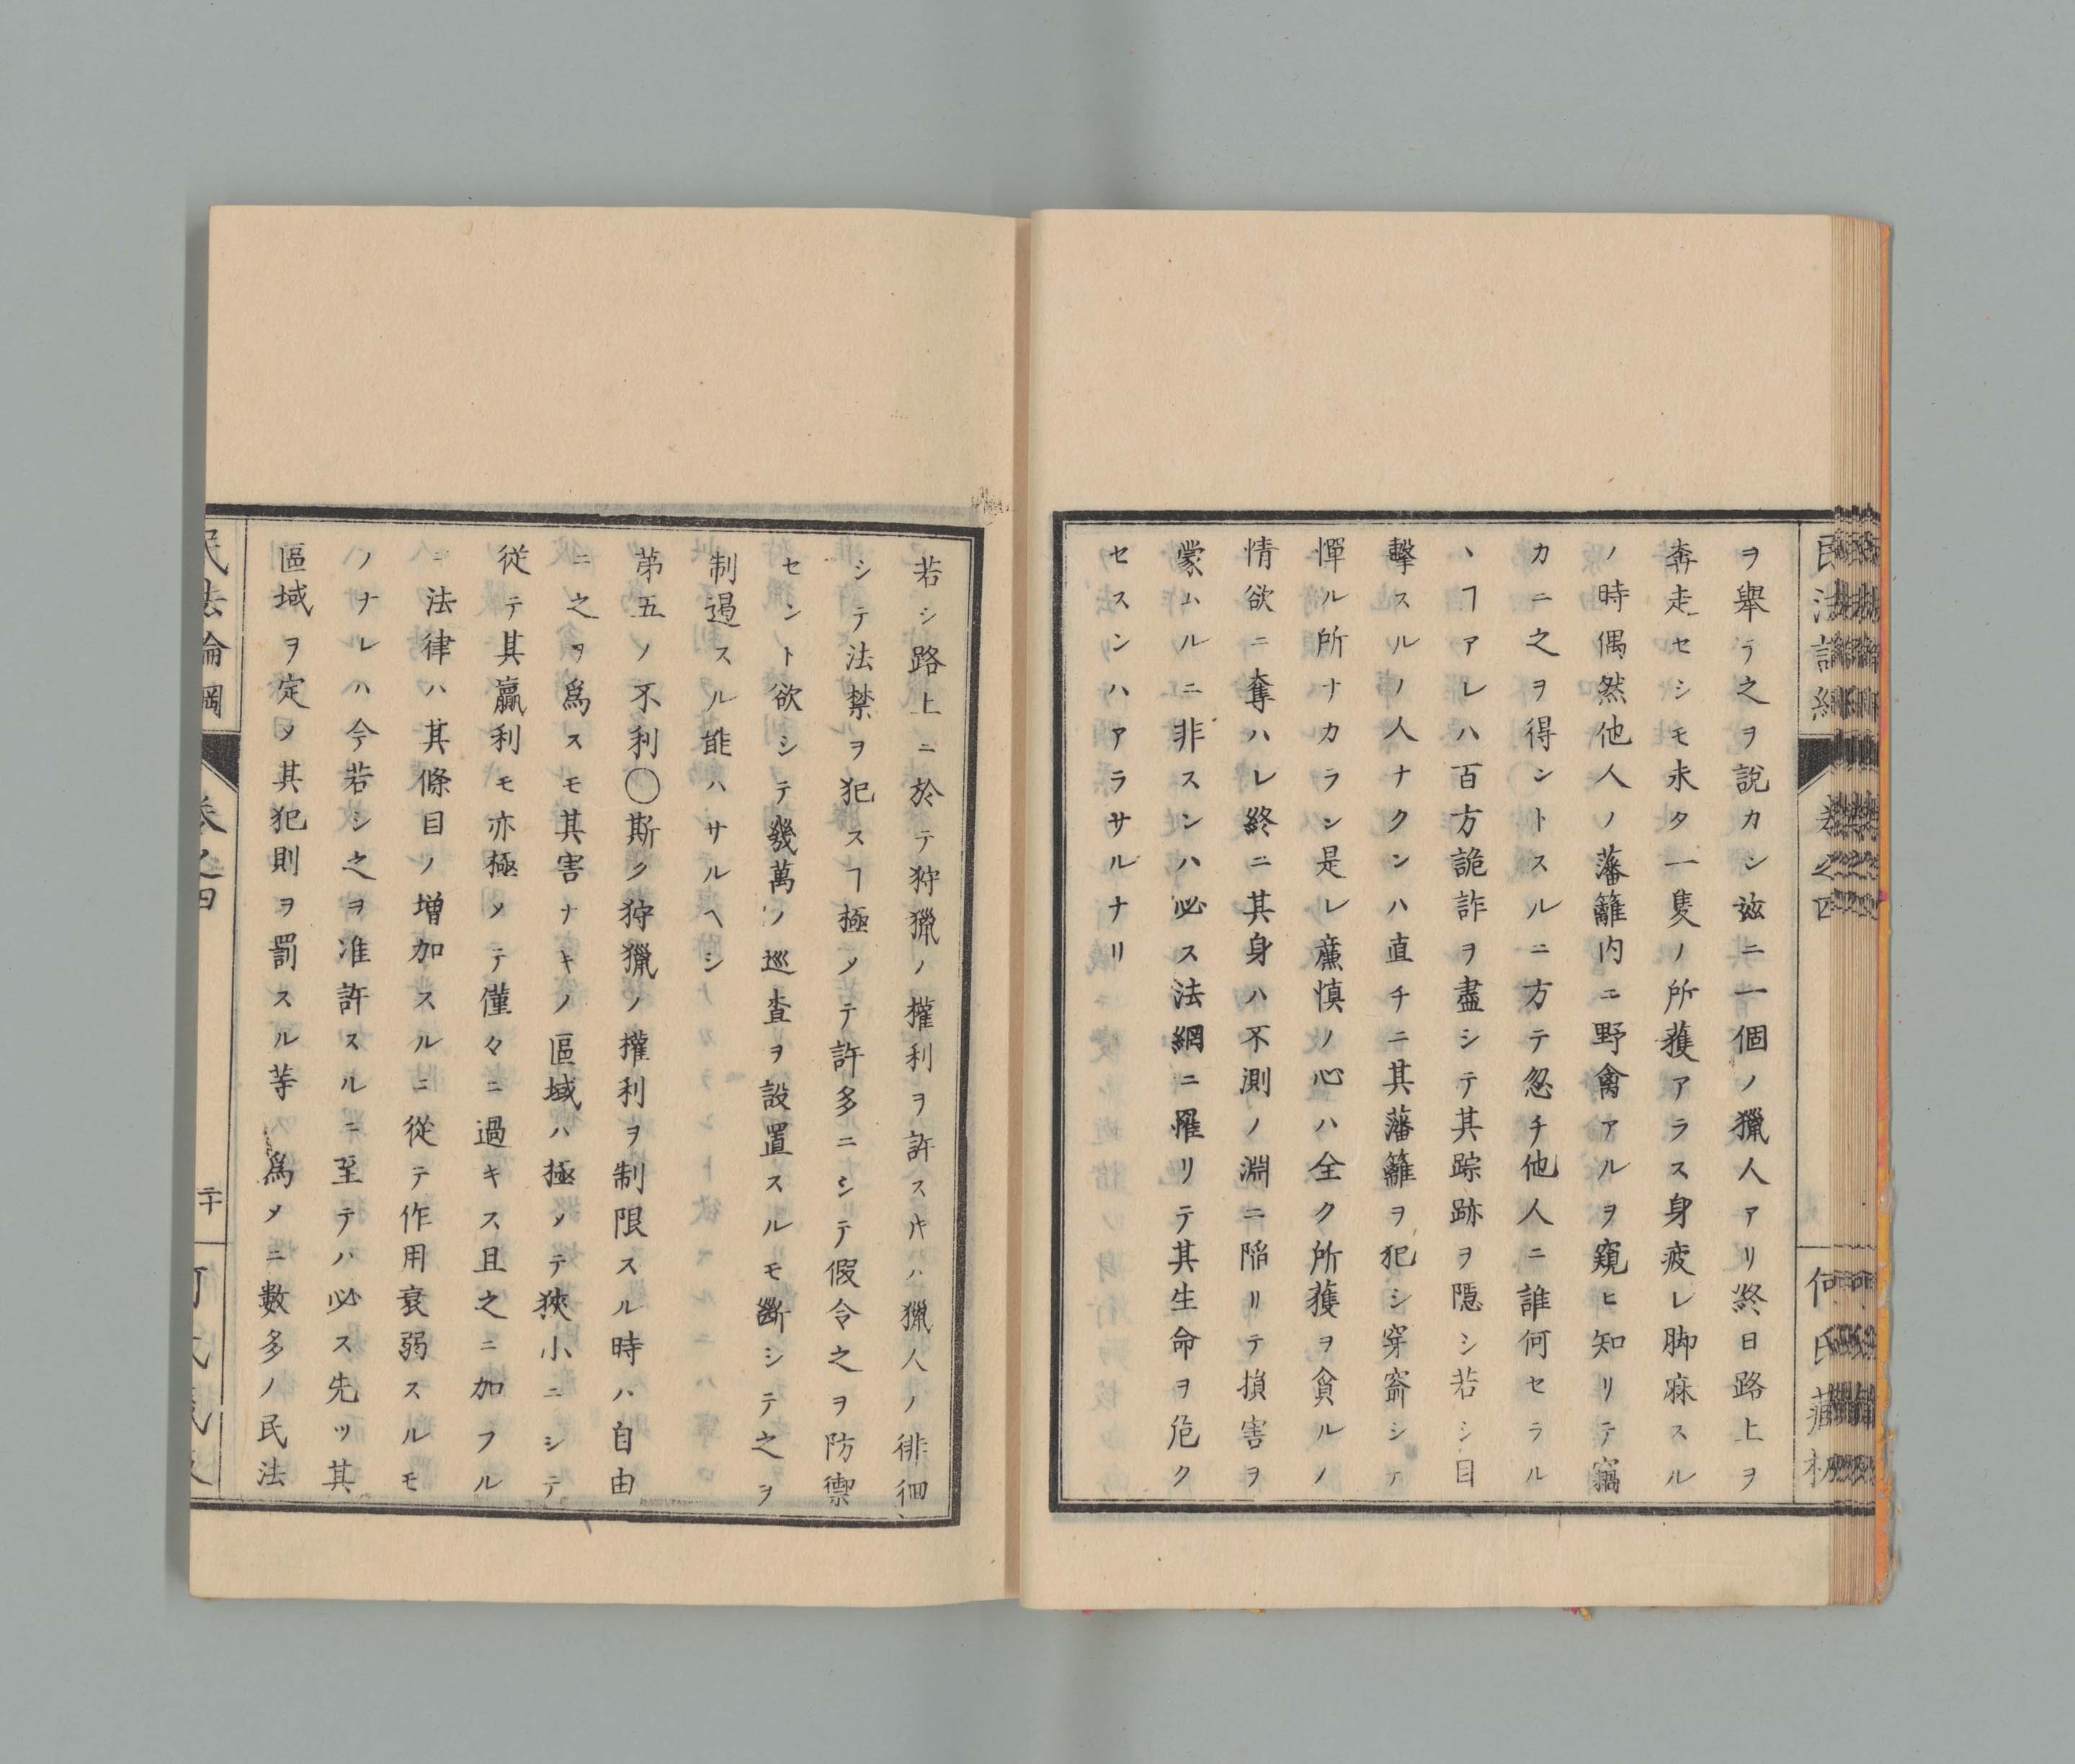 ヲ擧ラ之ヲ說カン玆ニ一個ノ獵人アリ終日路上ヲ
奔走セシモ未タ一隻ノ所獲アラス身疲レ脚麻スル
ノ時偶然他人ノ藩籬内ニ野禽アルヲ窺ヒ知リテ竊
カニ之ヲ得ントスルニ方テ忽チ他人ニ誰何セラル
ヽヿアレハ百方詭詐ヲ盡シテ其踪跡ヲ隱シ若シ目
擊スルノ人ナクンハ直チニ其藩籬ヲ犯シ穿窬シテ
憚ル所ナカラン是レ廉愼ノ心ハ全ク所獲ヲ貪ルノ
情欲ニ奪ハレ終ニ其身ハ不測ノ淵ニ陷リテ損害ヲ
蒙ムルニ非スンハ必ス法網ニ罹リテ其生命ヲ危ク
セスンハアラサルナリ
若シ路上ニ於テ狩獵ノ權利ヲ許ス𪜈ハ獵人ノ徘徊
シテ法禁ヲ犯スヿ極メテ許多ニシテ假令之ヲ防禦
セント欲シテ幾萬ノ巡査ヲ設置スルモ斷シテ之ヲ
制遏スル能ハサルヘシ
第五ノ不利〇斯ク狩獵ノ權利ヲ制限スル時ハ自由
ニ之ヲ爲スモ其害ナキノ區域ハ極メテ狹小ニシテ
從テ其贏利モ亦極メテ僅々ニ過キス且之ニ加フル
ニ法律ハ其條目ノ增加スルニ從テ作用衰弱スルモ
ノナレハ今若シ之ヲ准許スルニ至テハ必ス先ツ其
區域ヲ定メ其犯則ヲ罰スル等ノ爲メニ數多ノ民法
民法論綱
卷之四
二十
何氏藏板